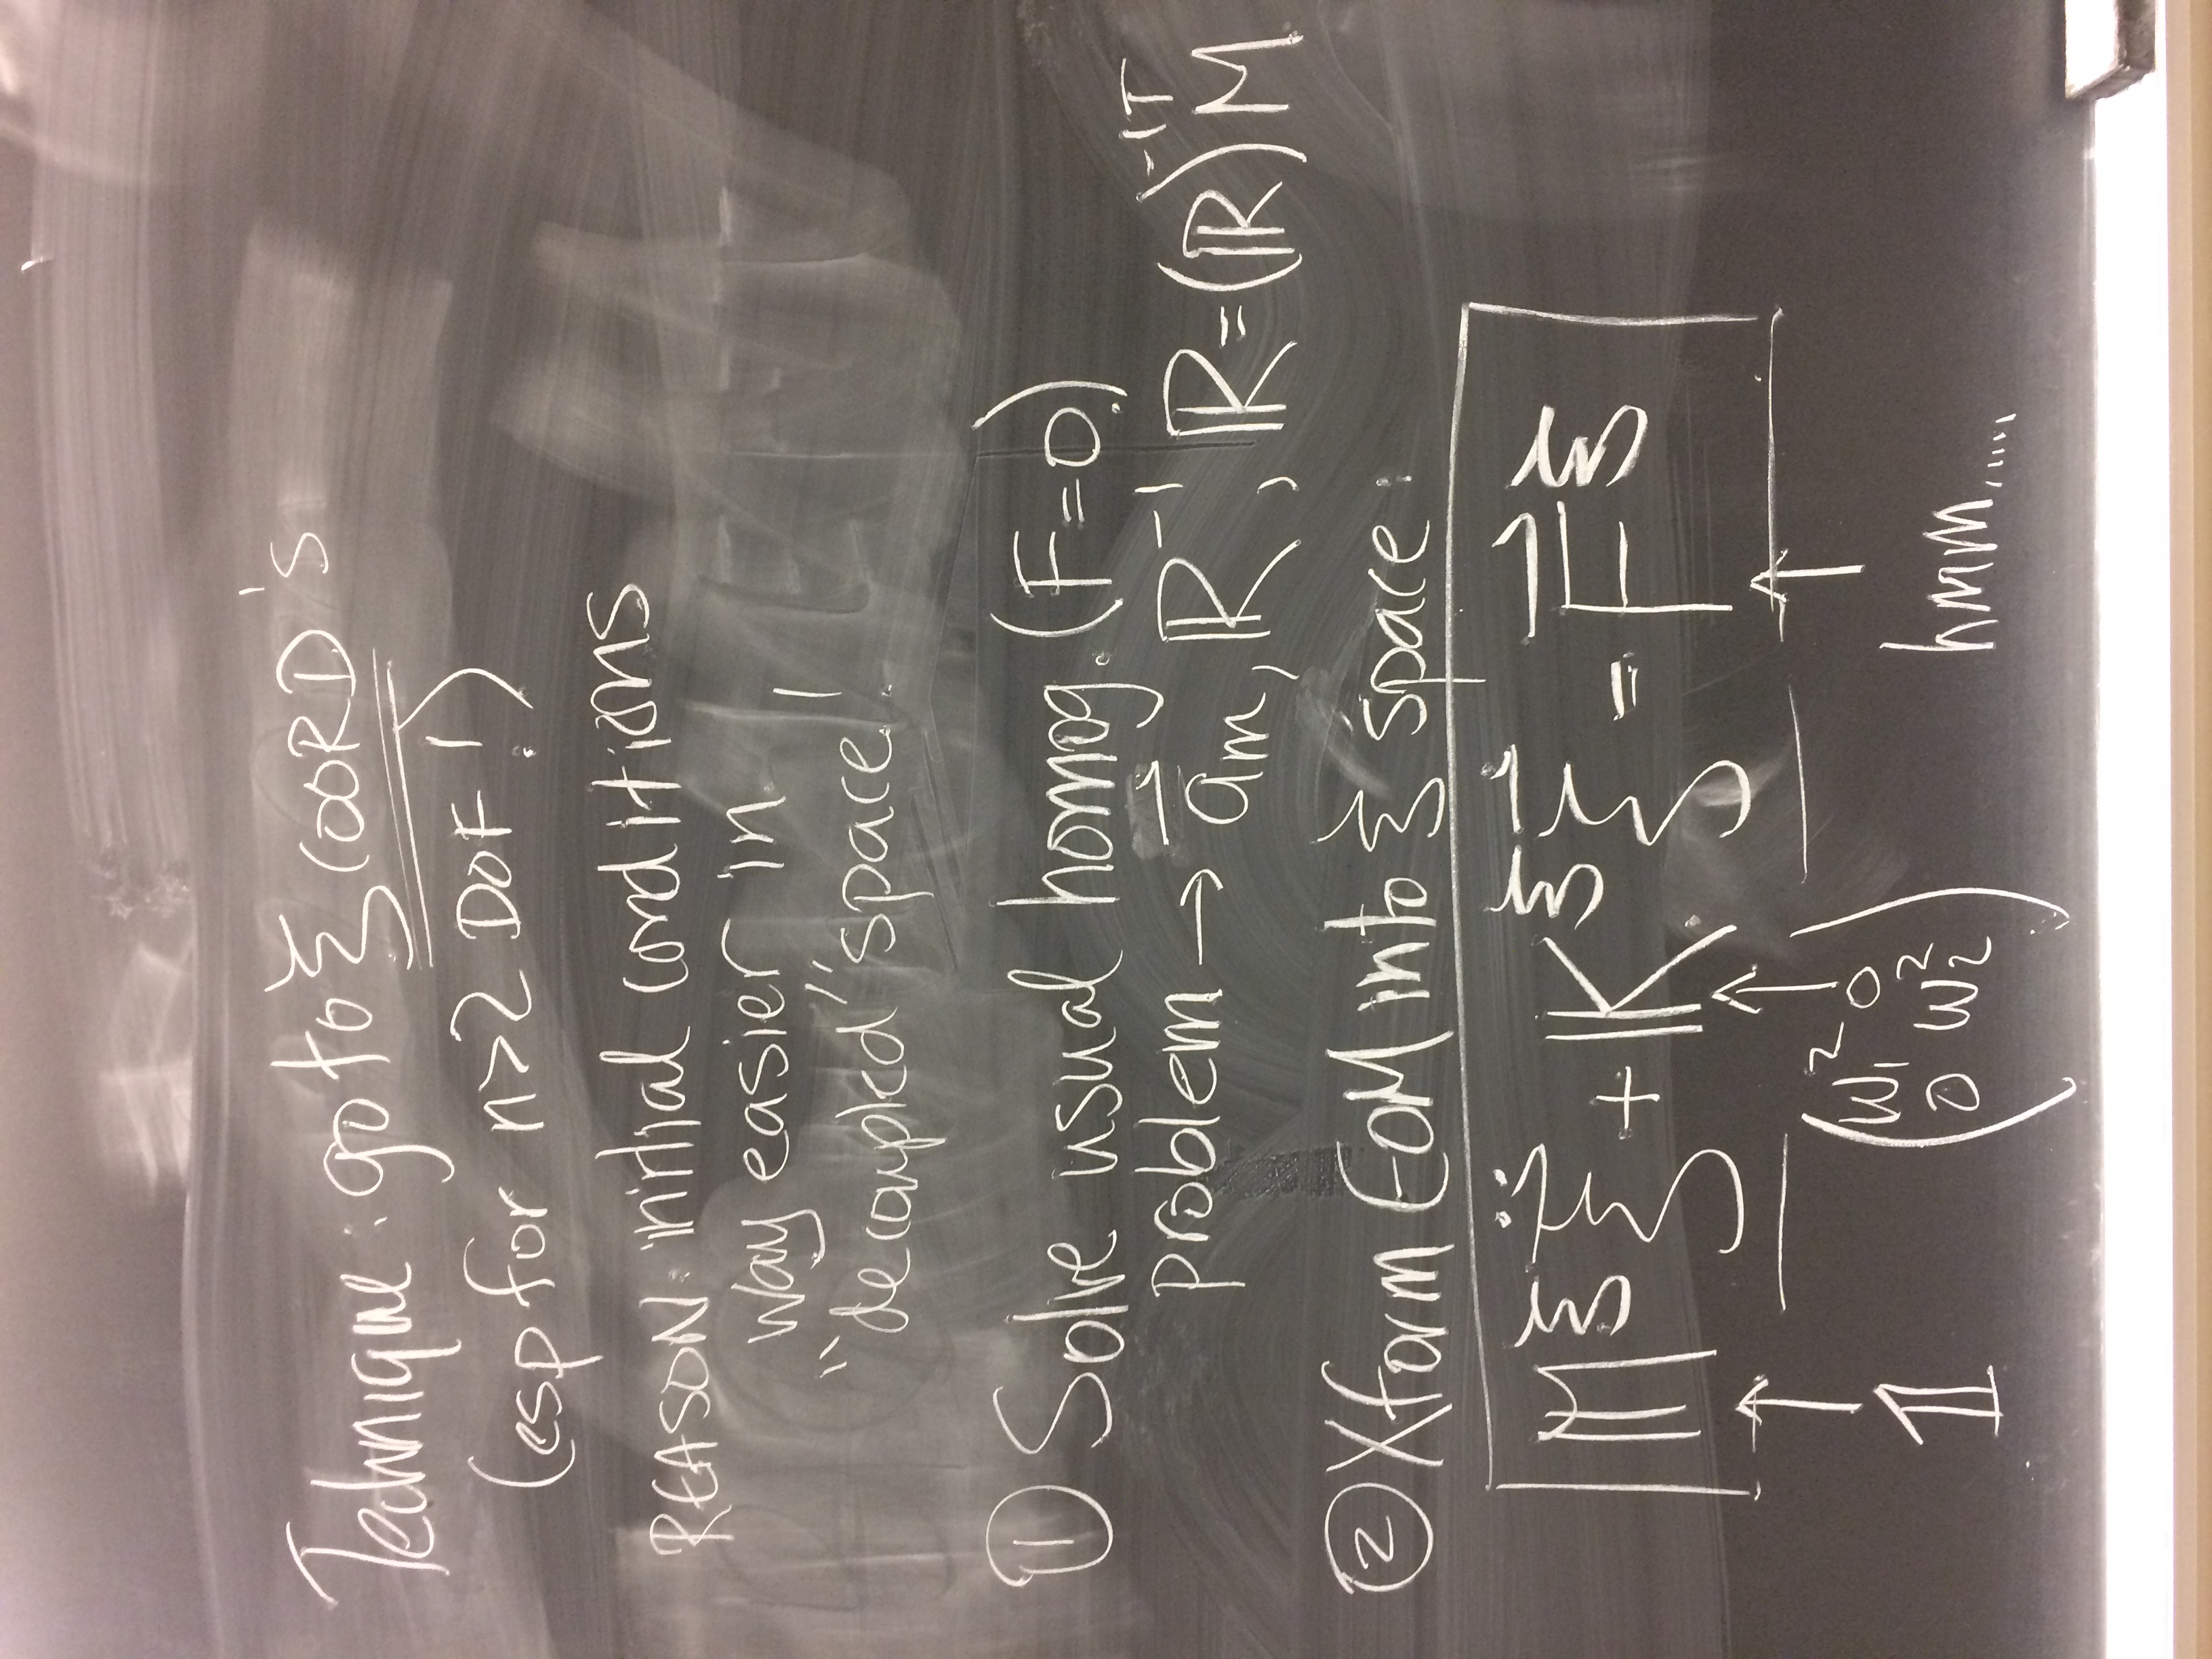 Technique: go to ξ COORD's
(esp for n>2 DOF!)
REASON: initial conditions
way easier in
"decoupled" space!
① Solve usual homog. (F=0)
problem → a⃗m, ℝ⁻¹, ℝ=(ℝ⁻¹)ᵀM
② Xform EoM into ξ space:
𝕄ξ ξ̈ + 𝕂ξ ξ⃗ = F⃗ξ
↑ ↑ ↑
𝟙 (ω₁² 0 hmm....
0 ω₂²)